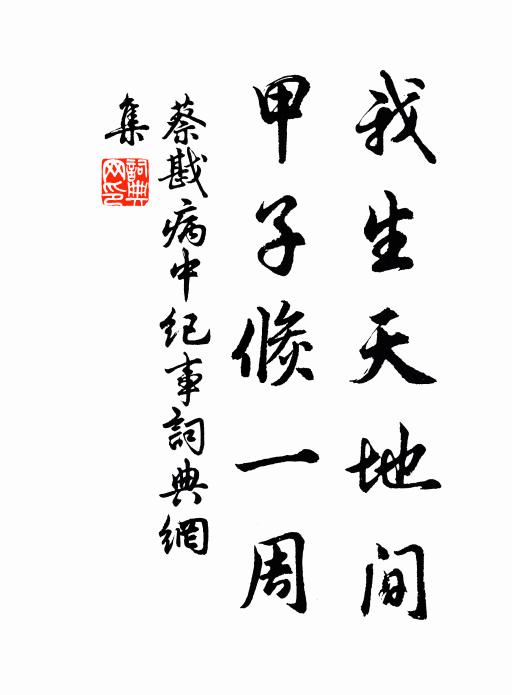 我生天地间
甲子倏一周
蔡戡病中纪事詞典網
集
詞典
网印